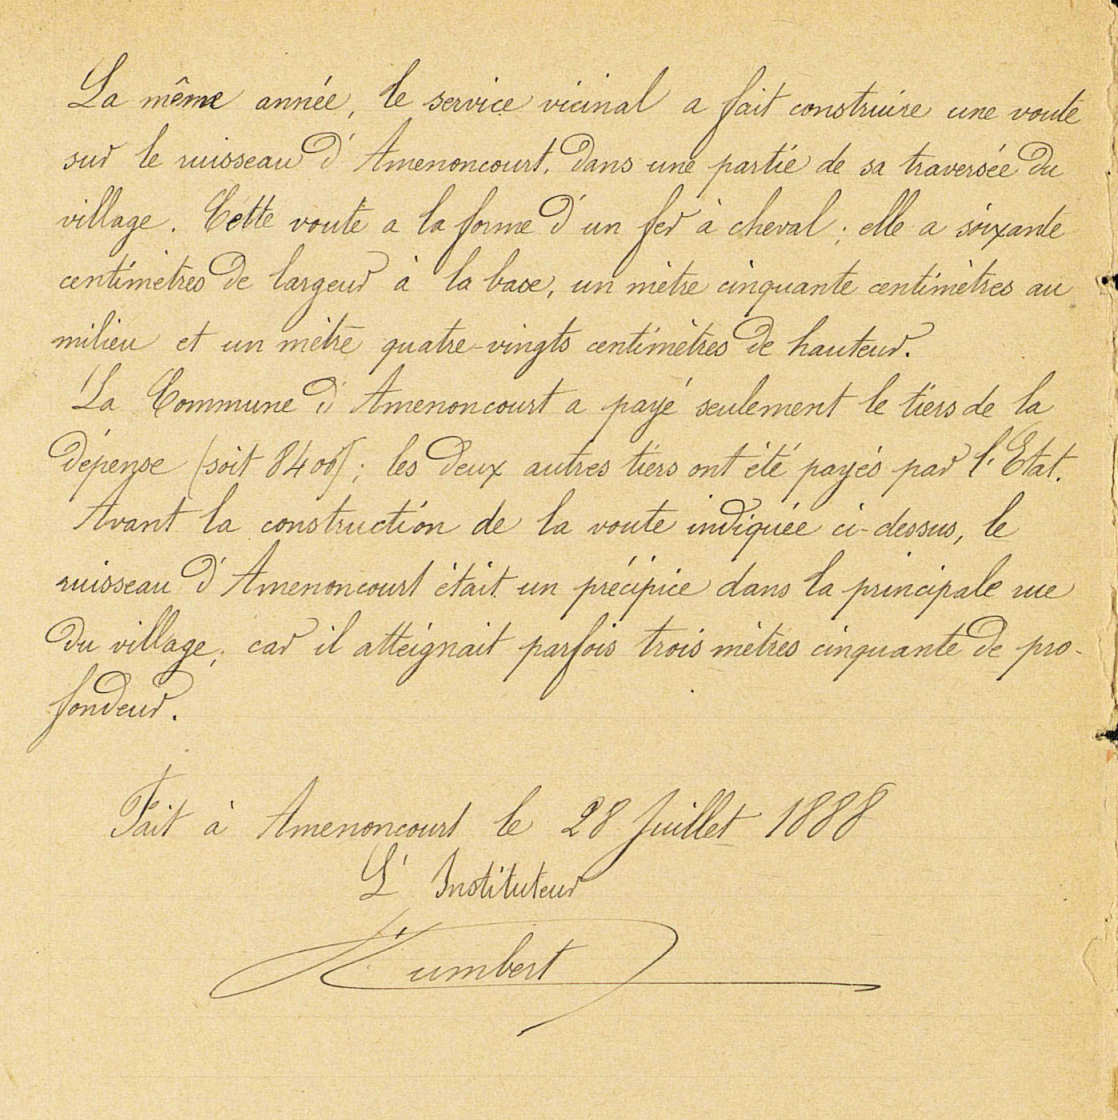 La même année, le service vicinal a fait construire une voute
sur le ruisseau d'Amenoncourt, dans une partie de sa traversée du
village. Cette voute a la forme d'un fer à cheval; elle a soixante
centimètres de largeur à la base, un mètre cinquante centimètres au
milieu et un mètre quatre-vingts centimètres de hauteur.
La Commune d'Amenoncourt a payé seulement le tiers de la
dépense (soit ; les deux autres tiers ont été payés par l'Etat.
Avant la construction de la voute indiquée ci-dessus, le
ruisseau d'Amenoncourt était un précipice dans la principale rue
du village; car il atteignait parfois trois mètres cinquante de pro-
fondeur.
Fait à Amenoncourt le 28 Juillet 1888
L'Instituteur
Humbert